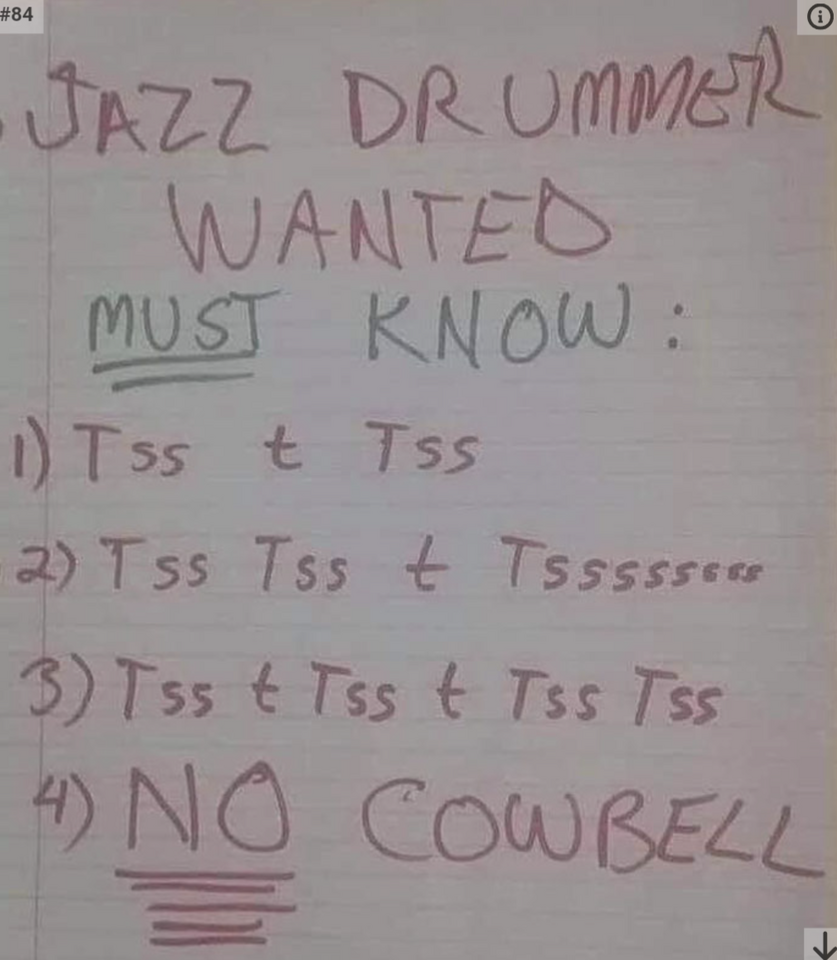 #84
JAZZ DRUMMER
WANTED
MUST KNOW:
1) Tss t Tss
2) Tss Tss t Tsssssssss
3) Tss t Tss t Tss Tss
4) NO COWBELL